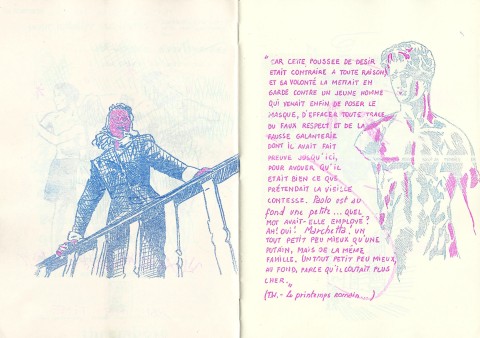 "CAR CETTE POUSSEE DE DESIR
ETAIT CONTRAIRE A TOUTE RAISON,
ET SA VOLONTÉ LA METTAIT EN
GARDE CONTRE UN JEUNE HOMME
QUI VENAIT ENFIN DE POSER LE
MASQUE, D'EFFACER TOUTE TRACE
DU FAUX RESPECT ET DE LA
FAUSSE GALANTERIE
DONT IL AVAIT FAIT
PREUVE JUSQU'ICI,
POUR AVOUER QU'IL
ETAIT BIEN CE QUE
PRÉTENDAIT LA VIEILLE
COMTESSE. Paolo est au
fond une petite... QUEL
MOT AVAIT-ELLE EMPLOYÉ?
AH! OUI! Marchetta, UN
TOUT PETIT PEU MIEUX QU'UNE
PUTAIN, MAIS DE LA MÊME
FAMILLE. UN TOUT PETIT PEU MIEUX,
AU FOND, PARCE QU'IL COUTAIT PLUS
CHER."
(T.W. - Le printemps romain...)